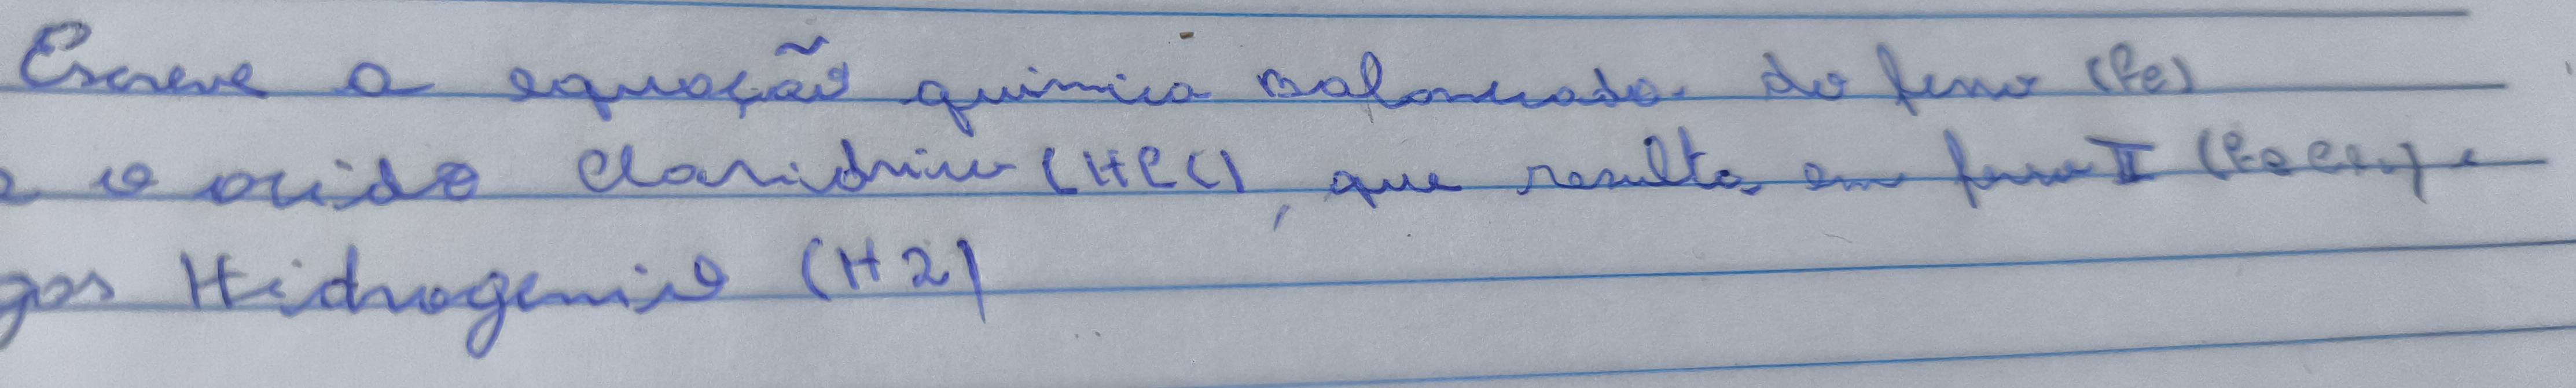 Escreve a equação química balanceada do ferro (Fe)
e o ácido cloridrico (HCl), que resulta em ferro II (FeCl2) e
gas Hidrogenio (H2)